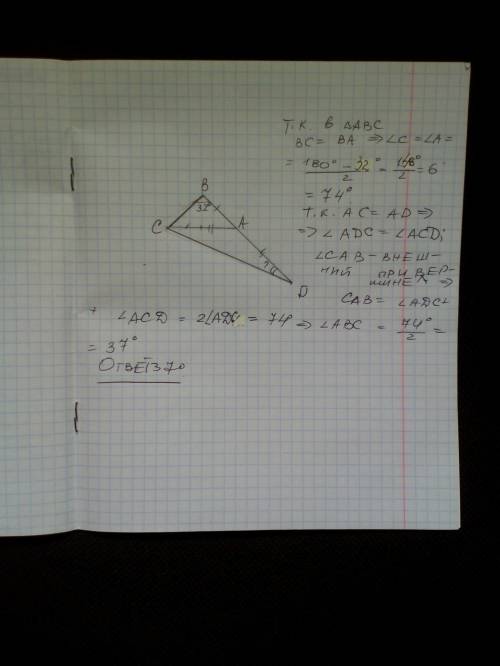 Т.К. В ΔABC
BC = BA ⇒ ∠C = ∠A =
= 180° - 32° / 2 = 148° / 2 = 6
= 74°
Т.К. AC = AD ⇒
⇒ ∠ADC = ∠ACD;
∠CAB - ВНЕШ-
НИЙ ПРИ ВЕР-
ШИНЕ A ⇒
CAB = ∠ADC+
+ ∠ACD = 2∠ADC = 74° ⇒ ∠ABC = 74° / 2 =
= 37°
ОТВЕТ: 37°
B
32°
C
A
D